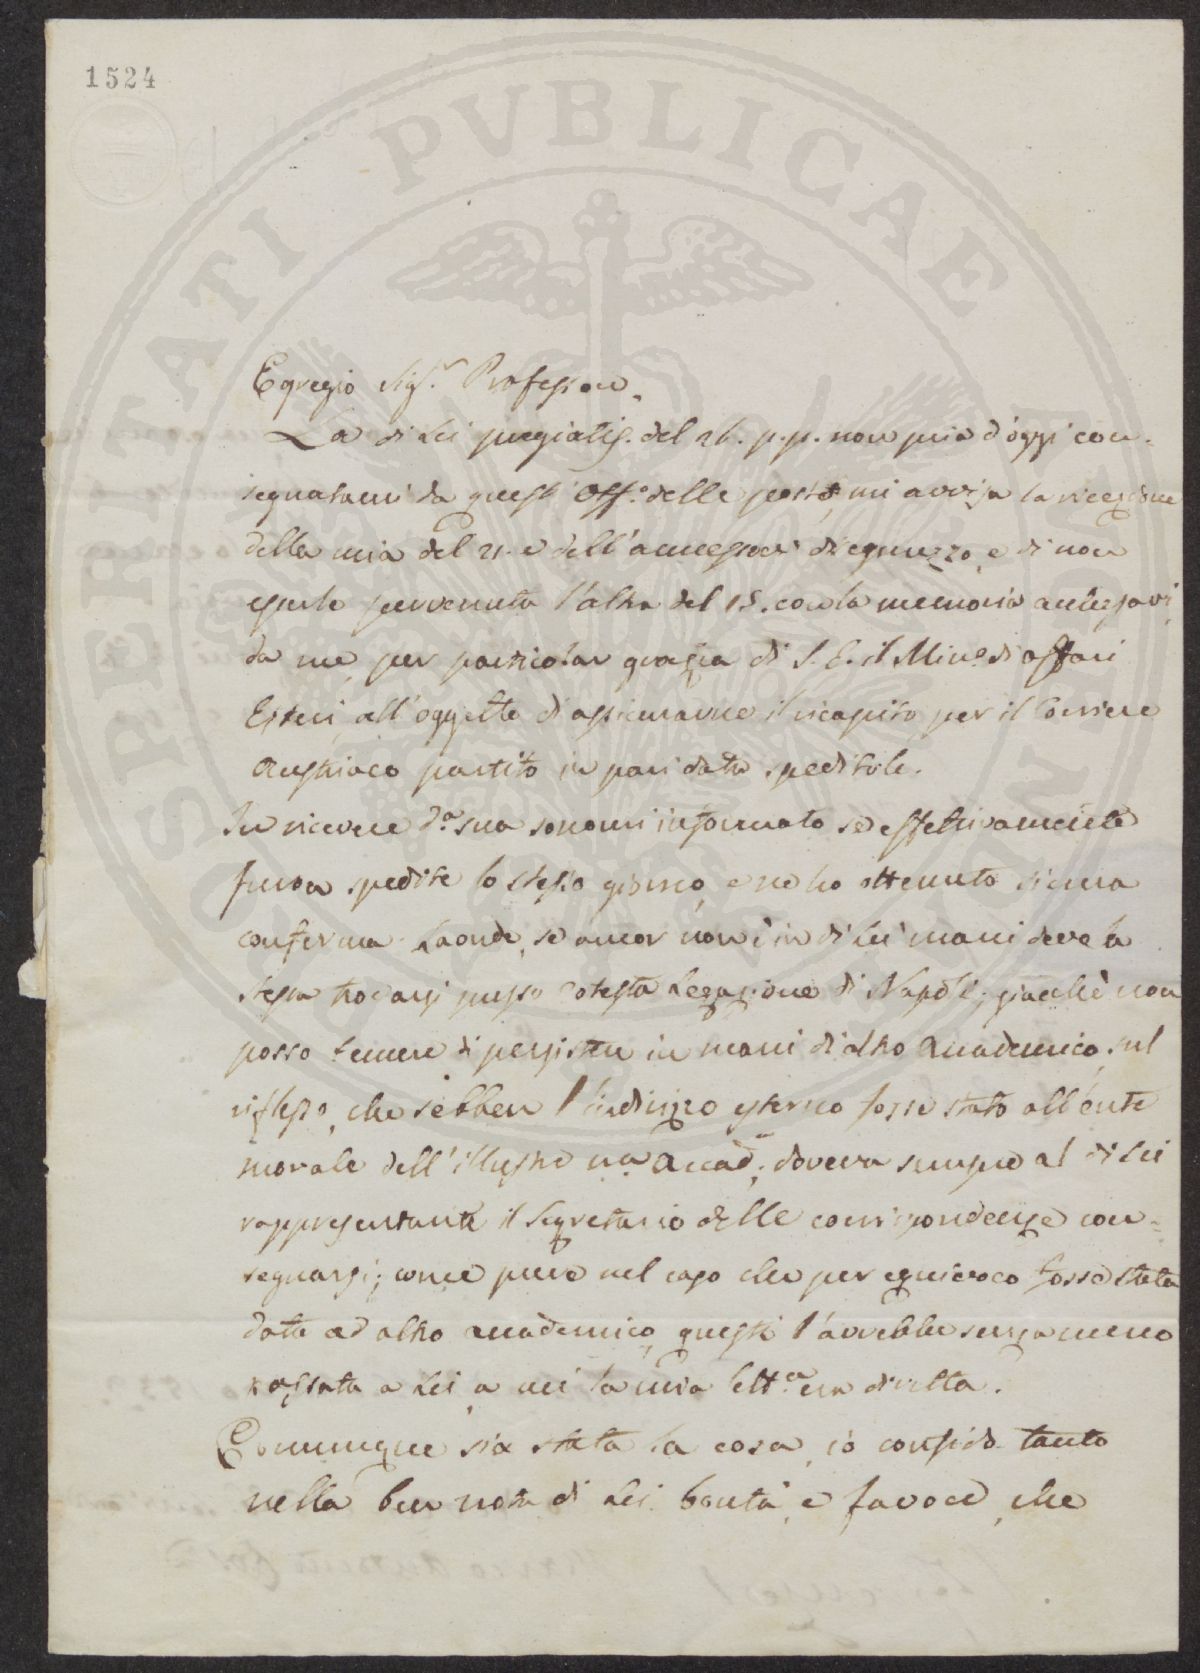 1524
PROSPERITATI PVBLICAE AVGENDAE
Egregio Sig.r Professore.
La di Lei pregiatis. del 26. p. p. non pria d'oggi con-
segnatami da questi Off.i delle poste, mi avvisa la ricezione
della mia del 21. e dell'annessovi di egual, e di non
esserle pervenuta l'altra del 15. con la memoria antessavi
da me, per particolar grazia di S. E. il Min.o di affari
Esteri, all'oggetto di assicurarne il ricapito, per il Corriere
Austriaco partito in pari data speditole.
In ricevere d.a sua sonomi informato se effettivamente
furon spedite lo stesso giorno, e ne ho ottenuto sicura
conferma. Laonde, se ancor non è in di Lei mani deve la
stessa trovarsi presso cotesta Legazione di Napoli; giacchè non
posso temere di persistere in mani di altro Accademico, sul
riflesso, che sebben l'indirizzo esterno fosse stato all'ente
morale dell'illustre Accad.; doveva sempre al di Lei
rappresentante il Segretario delle corrispondenze con-
segnarsi; come pure nel caso che per equivoco fosse stata
data ad altro accademico, questi l'avrebbe senza meno
passata a Lei, a cui la mia lett.ra era diretta.
Comunque sia stata la cosa, io confido tanto
nella ben nota di Lei bontà, e favore, che